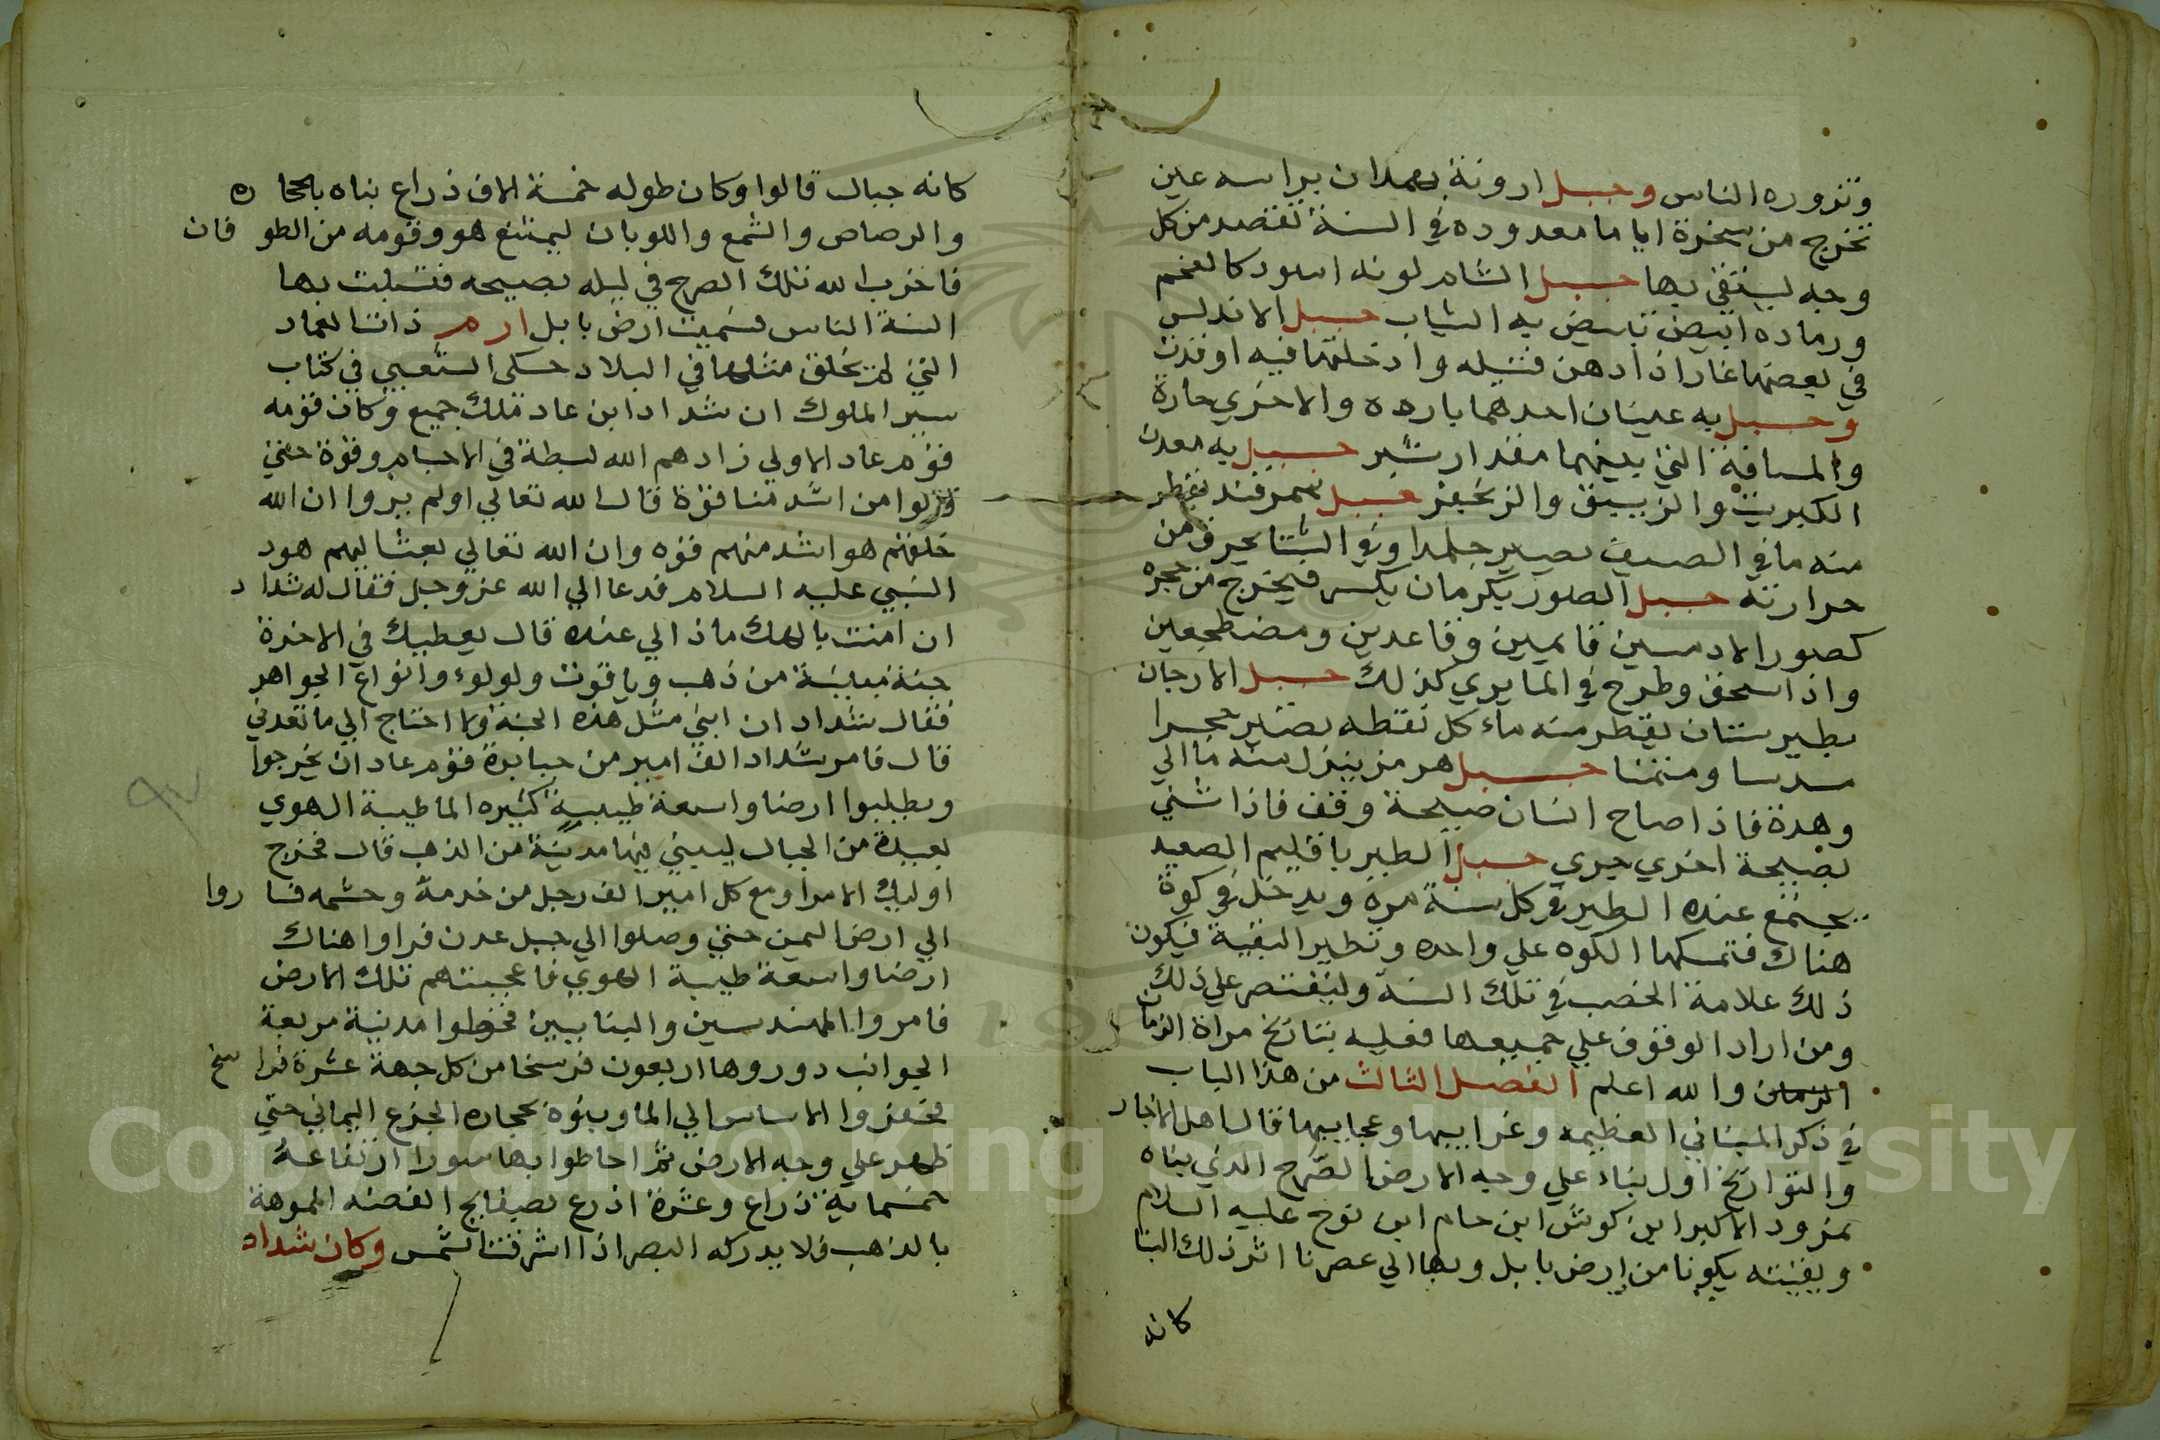 وتزوره الناس وجبل اروند بهمدان براسه عين
تخرج من صخرة اياما معدوده في السنة تقصد من كل
وجه ليستقي بها جبل الشام لونه اسود كالفحم
ورماده ابيض تبيض به الثياب جبل الاندلس
في بعضها غار اذا دهن فتيله وادخلتها فيه اوقدت
وجبل به عينان احدهما بارده والاخري حارة
والمسافة التي بينهما مقدار شبر جبل به معدن
الكبريت والزيبق والزنجفر جبل سمرقند تقطر
منه ما في الصيف يصير جلمدا وفي الشتا يحرق من
حرارته جبل الصور بكرمان يكسر فيخرج من حجره
كصور الادميين قايمين وقاعدين ومضطجعين
واذا سحق وطرح في الما يري كذلك جبل الارجان
بطبرستان يقطر منه ماء كل نقطه تصير حجرا
مسدسا ومثمنا جبل هرمز ينزل منه ما الي
وهدة فاذا صاح انسان صيحة وقف فاذا ثني
بصيحة اخري جري جبل الطير باقليم الصعيد
يجتمع عنده الطير في كل سنة مرة ويدخل في كوة
هناك فتمسكها الكوه علي واحده وتطير البقية فيكون
ذلك علامة الخصب في تلك السنه ولنقتصر علي ذلك
ومن اراد الوقوف علي جميعها فعليه بتاريخ مراة الزمان
الزمان والله اعلم الفصل الثالث من هذا الباب
في ذكر المباني العظيمه وغرايبها وعجايبها قال اهل الاخبار
والتواريخ اول بناء علي وجه الارض الصرح الذي بناه
نمرود الاكبر ابن كوش ابن حام ابن نوح عليه السلام
وبقيته بكوثا من ارض بابل وبها الي عصرنا اثر ذلك البنا
كانه
كانه جبال قالوا وكان طوله خمسة الاف ذراع بناه بالحجاره
والرصاص والشمع واللوبان ليمتنع هو وقومه من الطوفان
فاخرب الله تلك الصرح في ليله بصيحه فتبلبت بها
السنة الناس فسميت ارض بابل ارم ذات العماد
التي لم يخلق مثلها في البلاد حكي الشعبي في كتاب
سير الملوك ان شداد ابن عاد ملك جميع وكان قومه
قوم عاد الاولي زادهم الله بسطة في الاجسام وقوة حتي
قالوا من اشد منا قوة قال الله تعالي اولم يروا ان الله
خلقهم هو اشد منهم قوه وان الله تعالي بعث اليهم هود
النبي عليه السلام فدعا الي الله عز وجل فقال له شداد
ان امنت بالهك ماذا لي عنده قال يعطيك في الاخرة
جنة مبنية من ذهب وياقوت ولولوء وانواع الجواهر
فقال شداد ان ابني مثل هذه الجنة ولا احتاج الي ما تعدني
قال فامر شداد الف امير من جبابرة قوم عاد ان يخرجوا
ويطلبوا ارضا واسعة طيبة كثيره الما طيبة الهوي
بعيدة من الجبال ليبني فيها مدينة من الذهب قال فخرج
اوليك الامرا ومع كل امير الف رجل من خدمه وحشمه فساروا
الي ارض اليمن حتي وصلوا الي جبل عدن فراوا هناك
ارضا واسعة طيبة الهوي فاعجبتهم تلك الارض
فامروا المهندسين والبنايين فخطوا مدينة مربعة
الجوانب دوروها اربعون فرسخا من كل جهة عشرة فراسخ
فحفروا الاساس الي الما وبنوه بحجاره الجزع اليماني حتي
ظهر علي وجه الارض ثم احاطوا بها سورا ارتفاعه
خمسماية ذراع وعشرة اذرع بصفايح الفضه المموهة
بالذهب فلا يدركه البصر اذا اشرقت الشمس وكان شداد